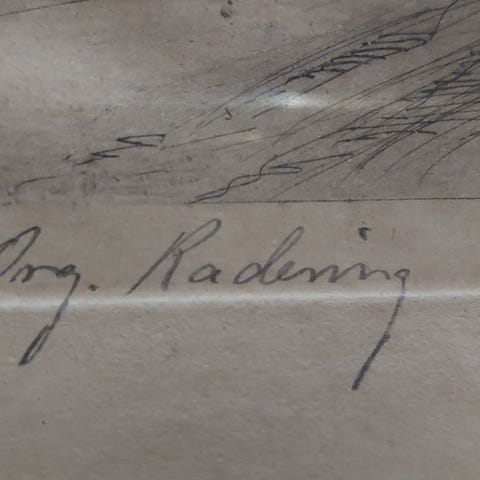 Org. Radering